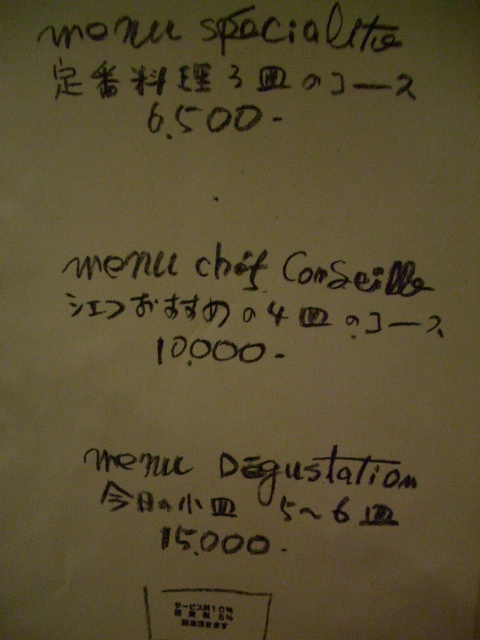 menu spécialite
定番料理3皿のコース
6,500-
menu chef Conseille
シェフおすすめの4皿のコース
10,000-
menu Dégustation
今日の小皿 5〜6皿
15,000-
サービス料10%
消費税5%
別途頂きます